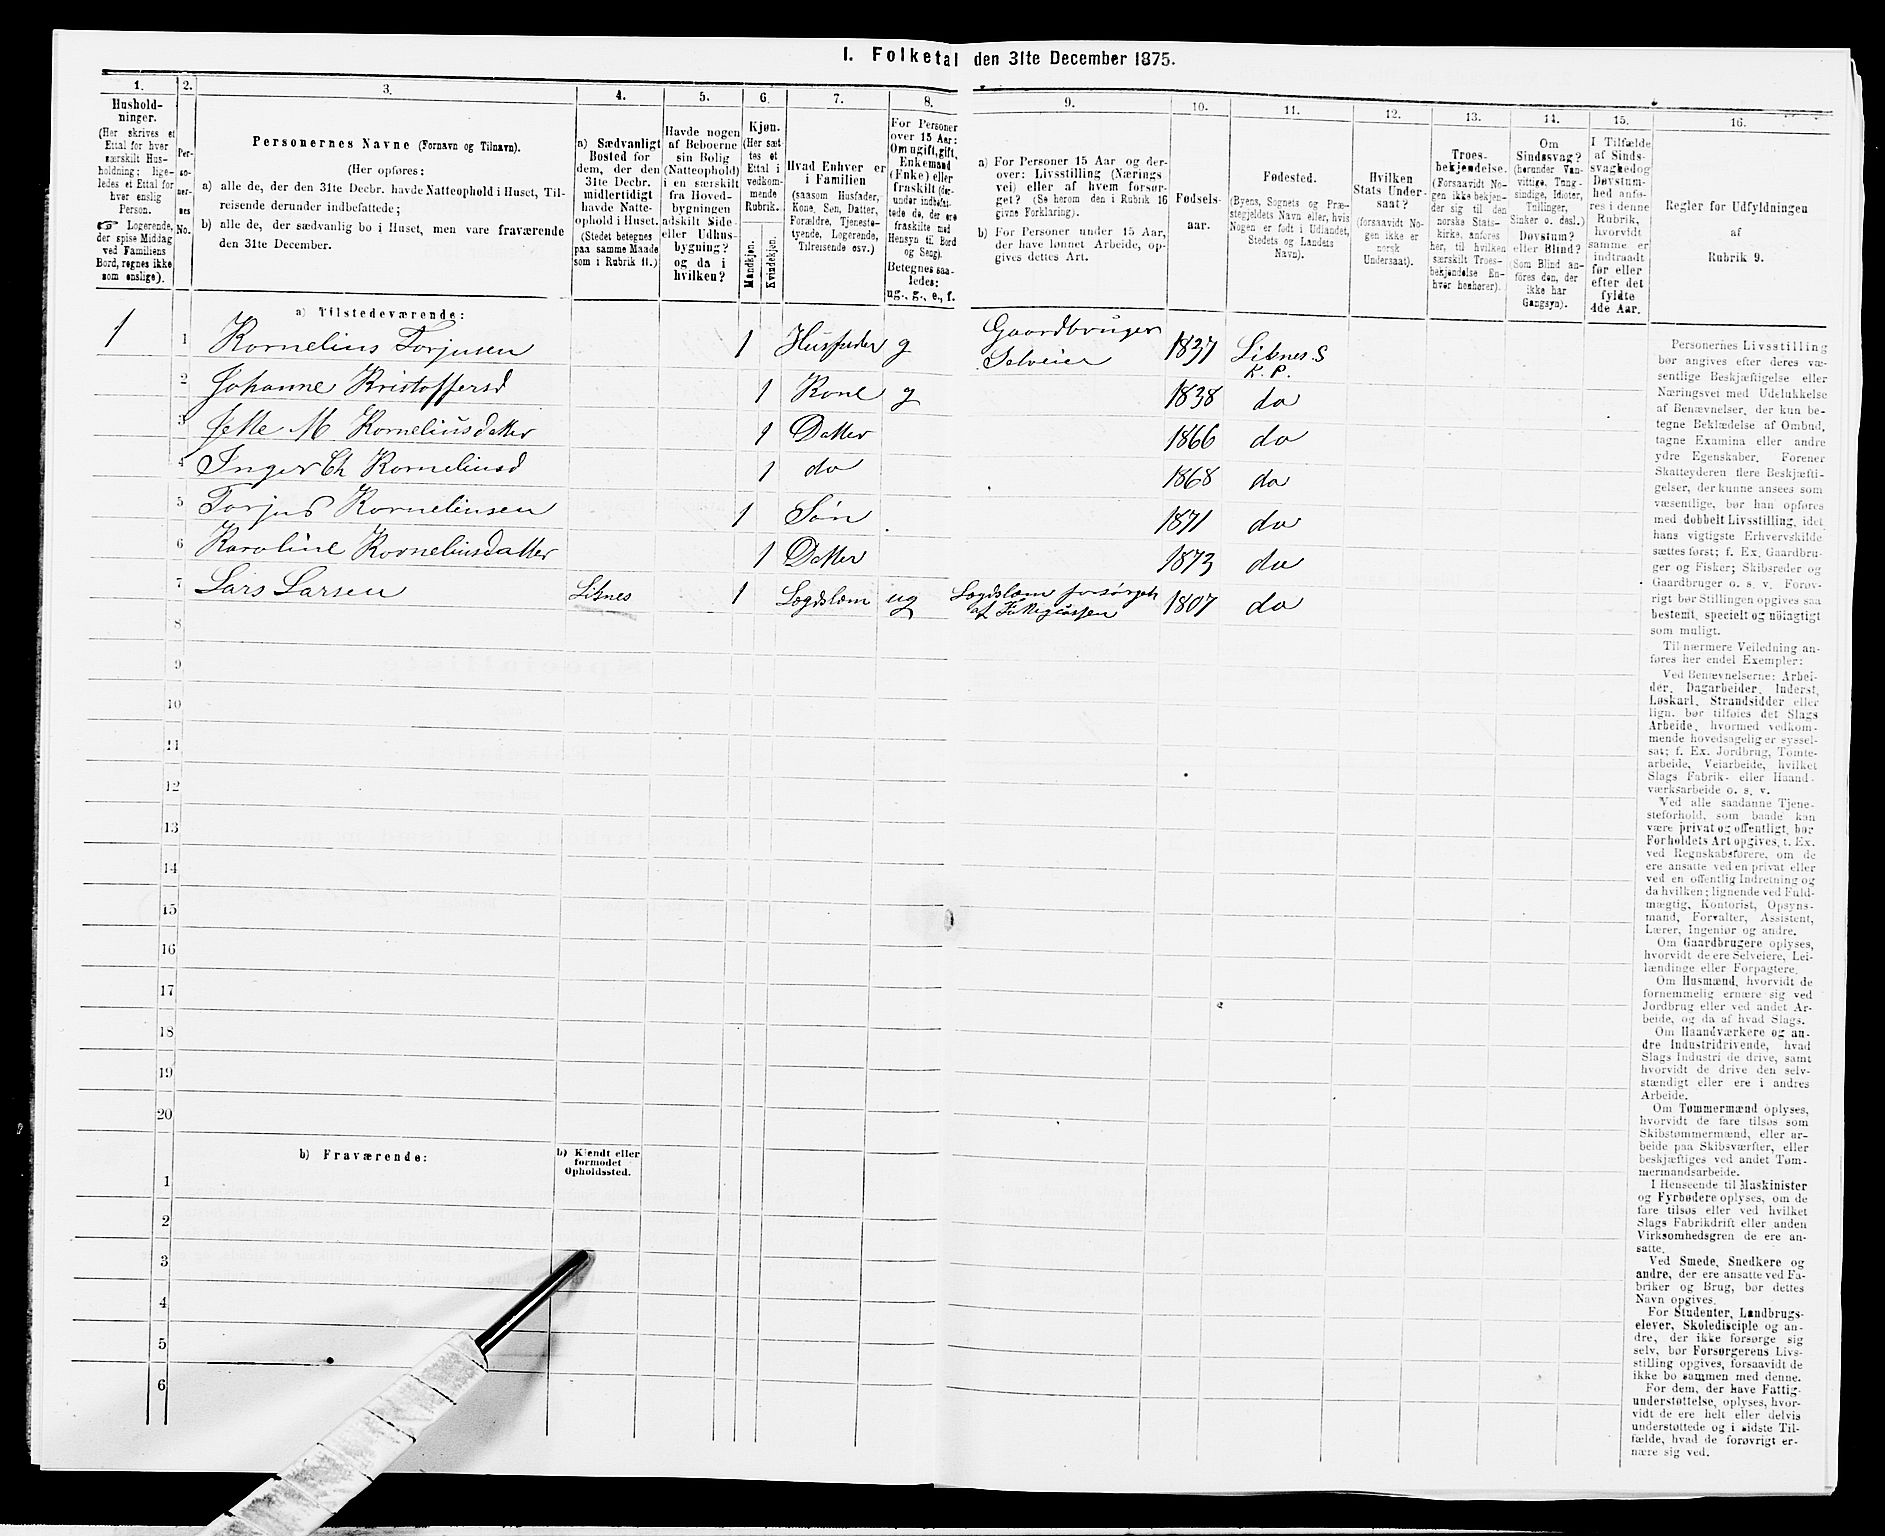 I. Folketal den 31te December 1875.
1. 2. 3. 4. 5. 6. 7. 8. 9. 10. 11. 12. 13. 14. 15. 16.
Hushold-
ninger.
(Her skrives et
Ettal for hver
særskilt Hus-
holdning; lige-
ledes et Ettal for
hver enslig
Person.
☞ Logerende,
der spise Middag
ved Familiens
Bord, regnes ikke
som enslige).
Per-
so-
ner-
nes
No.
Personernes Navne (Fornavn og Tilnavn).
(Her opføres:
a) alle de, der den 31te Decbr. havde Natteophold i Huset, Til-
reisende derunder indbefattede;
b) alle de, der sædvanlig bo i Huset, men vare fraværende
den 31te December.
a) Sædvanligt
Bosted for
dem, der den
31te Decbr.
midlertidigt
havde Natte-
ophold i Huset.
(Stedet betegnes
paa samme Maade
som i Rubrik 11.)
Havde nogen
af Beboerne
sin Bolig
(Natteophold)
i en særskilt
fra Hoved-
bygningen
adskilt Side-
eller Udhus-
bygning?
og da i
hvilken?
Kjøn.
(Her sæt-
tes et
Ettal i
vedkom-
mende
Rubrik.
Mandkjøn.
Kvindekjøn.
Hvad Enhver er
i Familien
(saasom Husfader,
Kone, Søn, Datter,
Forældre, Tjeneste-
tyende, Logerende,
Tilreisende osv.)
For Personer
over 15 Aar:
Om ugift, gift,
Enkemand
(Enke) eller
fraskilt (der-
under indbefat-
tede de, der ere
fraskilte med
Hensyn til Bord
og Seng).
Betegnes saa-
ledes:
ug., g., e., f.
a) For Personer 15 Aar og der-
over: Livsstilling (Nærings
vei) eller af hvem forsør-
get? (Se herom den i Rubrik 16
givne Forklaring).
b) For Personer under 15 Aar,
der have lønnet Arbeide, op-
gives dettes Art.
Fødsels-
aar.
Fødested.
(Byens, Sognets og Præ-
stegjeldets Navn eller, hvis
Nogen er født i Udlandet,
Stedets og Landets
Navn).
Hvilken
Stats Under-
saat?
(forsaavidt No-
gen ikke er
norsk
Undersaat).
Troes-
bekjendelse.
(Forsaavidt No-
gen ikke bekjen-
der sig til den
norske Stats-
kirke, anføres
her, til hvilken
særskilt Troes-
bekjendelse En-
hver henhører).
Om
Sindssvag?
(herunder Van-
vittige, Tung-
sindige, Idioter,
Tullinger,
Sinker o. desl.)
Døvstum?
eller Blind?
(Som Blind an-
føres den, der
ikke har
Gangsyn).
I Tilfælde
af Sinds-
svaghed og
Døvstum-
hed anfø-
res i denne
Rubrik,
hvorvidt
samme er
indtraadt
før eller
efter det
fyldte
4de Aar.
Regler for Udfyldningen
af
Rubrik 9.
a) Tilstedeværende:
1 1 Kornelius Torjusen 1 Husfader g Gaardbruger Selveier 1837 Liknes S K. P.
2 Johanne Kristoffersd 1 Kone g 1838 do
3 Jette M Korneliusdatter 1 Datter 1866 do
4 Inger Ch Korneliusd 1 do 1868 do
5 Torjus Korneliusen 1 Søn 1871 do
6 Karoline Korneliusdatter 1 Datter 1873 do
7 Lars Larsen Liknes 1 Lægdslem ug Lægdslem forsørget af Fattigcassen 1807 do
8
9
10
11
12
13
14
15
16
17
18
19
20
b) Fraværende:
b) Kjendt eller
formodet
Opholdssted.
1
2
3
4
5
6
Personernes Livsstilling
bør angives efter deres væ-
sentlige Beskjæftigelse eller
Næringsvei med Udelukkelse
af Benævnelser, der kun be-
tegne Beklædelse af Ombud,
tagne Examina eller andre
ydre Egenskaber. Forener
Skatteyderen flere Beskjæfti-
gelser, der kunne ansees som
væsentlige, bør han opføres
med dobbelt Livsstilling, idet
hans vigtigste Erhvervskilde
sættes først; f. Ex. Gaardbru-
ger og Fisker; Skibsreder og
Gaardbruger o. s. v. Forøv-
rigt bør Stillingen opgives saa
bestemt, specielt og nøiagtigt
som muligt.
Til nærmere Veiledning an-
føres her endel Exempler:
Ved Benævnelserne: Arbei-
der, Dagarbeider, Inderst,
Løskarl, Strandsidder eller
lign. bør tilføies det Slags
Arbeide, hvormed vedkom-
mende hovedsagelig er syssel-
sat; f. Ex. Jordbrug, Tomte-
arbeide, Veiarbeide, hvilket
Slags Fabrik- eller Haand-
værksarbeide o. s. v.
Ved alle saadanne Tjene-
steforhold, som baade kan
være privat og offentligt, bør
Forholdets Art opgives, f. Ex.
ved Regnskabsførere, om de
ere ansatte ved en privat eller
ved en offentlig Indretning og
da hvilken; lignende ved Fuld-
mægtig, Kontorist, Opsyns-
mand, Forvalter, Assistent,
Lærer, Ingeniør og andre.
Om Gaardbrugere oplyses,
hvorvidt de ere Selveiere, Lei-
lændinge eller Forpagtere.
Om Husmænd, hvorvidt de
fornemmelig ernære sig ved
Jordbrug eller ved andet Ar-
beide, og da af hvad Slags.
Om Haandværkere og an-
dre Industridrivende, hvad
Slags Industri de drive, samt
hvorvidt de drive den selv-
stændigt eller ere i andres
Arbeide.
Om Tømmermænd oplyses,
hvorvidt de fare tilsøs som
Skibstømmermænd, eller ar-
beide paa Skibsværfter, eller
beskjæftiges ved andet Tøm-
mermandsarbeide.
I Henseende til Maskinister
og Fyrbødere oplyses, om de
fare tilsøs eller ved hvilket
Slags Fabrikdrift eller anden
Virksomhedsgren de ere an-
satte.
Ved Smede, Snedkere og
andre, der ere ansatte ved Fa-
briker og Brug, bør dettes
Navn opgives.
For Studenter, Landbrugs-
elever, Skoledisciple og an-
dre, der ikke forsørge sig
selv, bør Forsørgerens Livs-
stilling opgives, forsaavidt de
ikke bo sammen med denne.
For dem, der have Fattig-
understøttelse, oplyses, hvor-
vidt de ere helt eller delvis
understøttede og i sidste Til-
fælde, hvad de forøvrigt er-
nære sig ved.